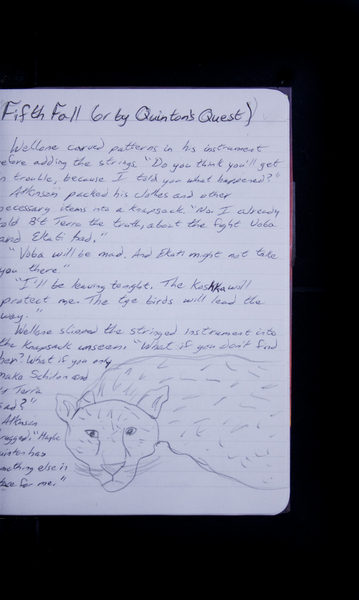 Fifth Fall (or by Quinton's Quest)
Wellene carved patterns in his instrument
efore adding the strings. "Do you think you'll get
n trouble, because I told you what happened?"
Atkinson packed his clothes and other
necessary items into a knapsack. "No. I already
old Bit Terra the truth, about the fight Voba
and Ekati had."
"Voba will be mad. And Ekati might not take
you there."
"I'll be leaving tonight. The Koshka will
protect me. The tge birds will lead the
way."
Wellene slipped the stringed instrument into
the knapsack unseen. "What if you don't find
her? What if you only
make Schilon and
Terra
ad?"
Atkinson
rugged. "Maybe
uinton has
mething else in
tore for me."